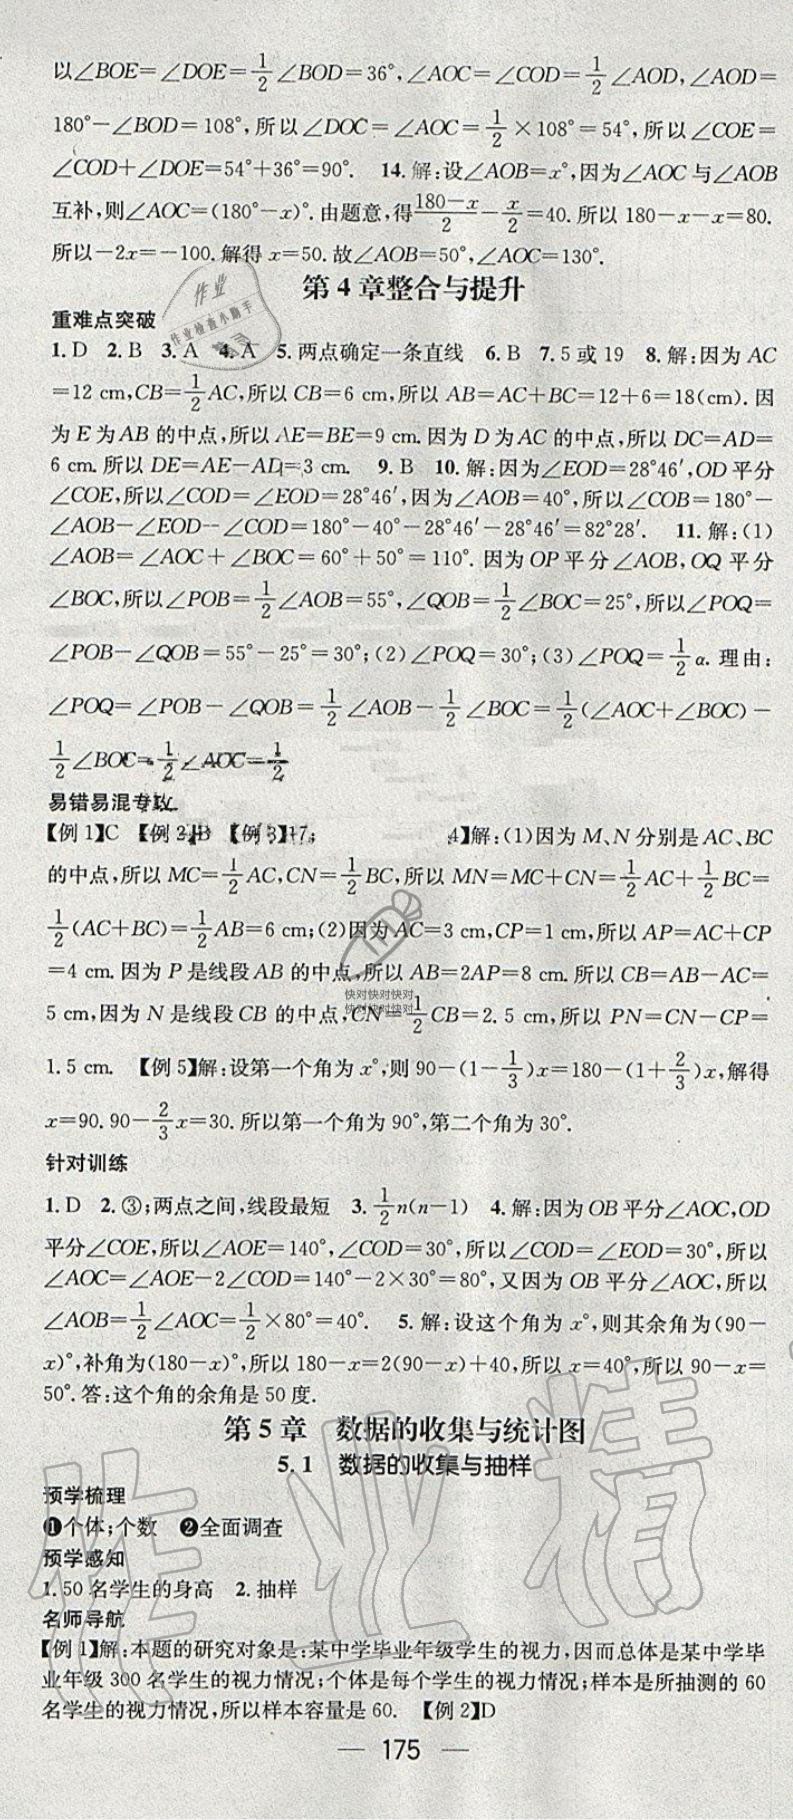 以∠BOE=∠DOE=1/2∠BOD=36°,∠AOC=∠COD=1/2∠AOD,∠AOD=
180°-∠BOD=108°,所以∠DOC=∠AOC=1/2×108°=54°,所以∠COE=
∠COD+∠DOE=54°+36°=90°. 14.解:设∠AOB=x°,因为∠AOC与∠AOB
互补,则∠AOC=(180°-x)°.由题意,得(180-x)/2-x/2=40.所以180-x-x=80.
所以-2x=-100.解得x=50.故∠AOB=50°,∠AOC=130°.
第4章整合与提升
重难点突破
1.D 2.B 3.A 4.A 5.两点确定一条直线 6.B 7.5或19 8.解:因为AC
=12 cm,CB=1/2AC,所以CB=6 cm,所以AB=AC+BC=12+6=18(cm).因
为E为AB的中点,所以AE=BE=9 cm.因为D为AC的中点,所以DC=AD=
6 cm.所以DE=AE-AD=3 cm. 9.B 10.解:因为∠EOD=28°46′,OD平分
∠COE,所以∠COD=∠EOD=28°46′,因为∠AOB=40°,所以∠COB=180°-
∠AOB-∠EOD-∠COD=180°-40°-28°46′-28°46′=82°28′. 11.解:(1)
∠AOB=∠AOC+∠BOC=60°+50°=110°.因为OP平分∠AOB,OQ平分
∠BOC,所以∠POB=1/2∠AOB=55°,∠QOB=1/2∠BOC=25°,所以∠POQ=
∠POB-∠QOB=55°-25°=30°;(2)∠POQ=30°;(3)∠POQ=1/2α.理由:
∠POQ=∠POB-∠QOB=1/2∠AOB-1/2∠BOC=1/2(∠AOC+∠BOC)-
1/2∠BOC=1/2∠AOC=1/2
易错易混专攻
【例1】C 【例2】B 【例3】17; 4】解:(1)因为M、N分别是AC、BC
的中点,所以MC=1/2AC,CN=1/2BC,所以MN=MC+CN=1/2AC+1/2BC=
1/2(AC+BC)=1/2AB=6 cm;(2)因为AC=3 cm,CP=1 cm,所以AP=AC+CP
=4 cm.因为P是线段AB的中点,所以AB=2AP=8 cm.所以CB=AB-AC=
5 cm,因为N是线段CB的中点,CN=1/2CB=2.5 cm,所以PN=CN-CP=
1.5 cm. 【例5】解:设第一个角为x°,则90-(1-1/3)x=180-(1+2/3)x,解得
x=90.90-2/3x=30.所以第一个角为90°,第二个角为30°.
针对训练
1.D 2.③;两点之间,线段最短 3.1/2n(n-1) 4.解:因为OB平分∠AOC,OD
平分∠COE,所以∠AOE=140°,∠COD=30°,所以∠COD=∠EOD=30°,所以
∠AOC=∠AOE-2∠COD=140°-2×30°=80°,又因为OB平分∠AOC,所以
∠AOB=1/2∠AOC=1/2×80°=40°. 5.解:设这个角为x°,则其余角为(90-
x)°,补角为(180-x)°,所以180-x=2(90-x)+40,所以x=40°,所以90-x=
50°.答:这个角的余角是50度.
第5章 数据的收集与统计图
5.1 数据的收集与抽样
预学梳理
❶个体;个数 ❷全面调查
预学感知
1.50名学生的身高 2.抽样
名师导航
【例1】解:本题的研究对象是:某中学毕业年级学生的视力,因而总体是某中学毕
业年级300名学生的视力情况;个体是每个学生的视力情况;样本是所抽测的60
名学生的视力情况,所以样本容量是60. 【例2】D
— 175 —
作业
作业检查小助手
快对快对快对
快对快对快对
作业精